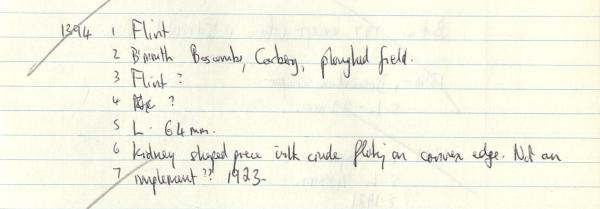 1394 1 Flint
2 B'mouth Boscombe, Carbery, ploughed field.
3 Flint ?
4 ?
5 L. 64mm.
6 Kidney shaped piece with crude flaking on convex edge. Not an
7 implement?? 1923.